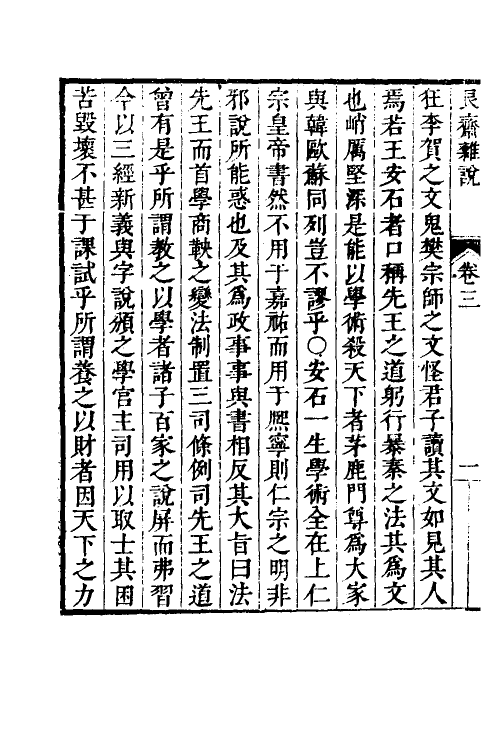 艮齋雜說 卷三 一
狂李賀之文鬼樊宗師之文怪君子讀其文如見其人
焉若王安石者口稱先王之道躬行暴秦之法其爲文
也峭厲堅深是能以學術殺天下者茅鹿門尊爲大家
與韓歐蘇同列豈不謬乎○安石一生學術全在上仁
宗皇帝書然不用于嘉祐而用于熈寧則仁宗之明非
邪說所能惑也及其爲政事事與書相反其大旨曰法
先王而首學商鞅之變法制置三司條例司先王之道
曾有是乎所謂教之以學者諸子百家之說屏而弗習
今以三經新義與字說頒之學官主司用以取士其困
苦毀壞不甚于課試乎所謂養之以財者因天下之力